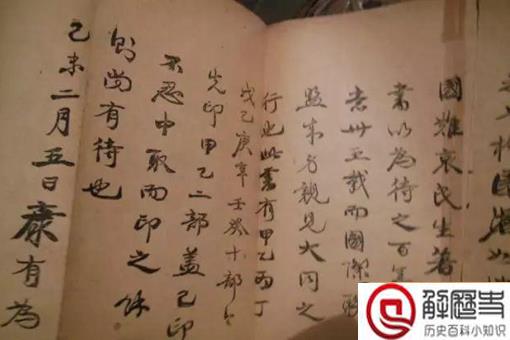 國難哀民生著
書以為待之百年
意卅五載而國際聯
盟成身親見大同之
行也此書有甲乙丙丁
戊己庚辛壬癸十部今
先印甲乙二部蓋已印
不忍中取而印之餘
則尚有待也
己未二月五日康有為
解歷史
历史百科小知识